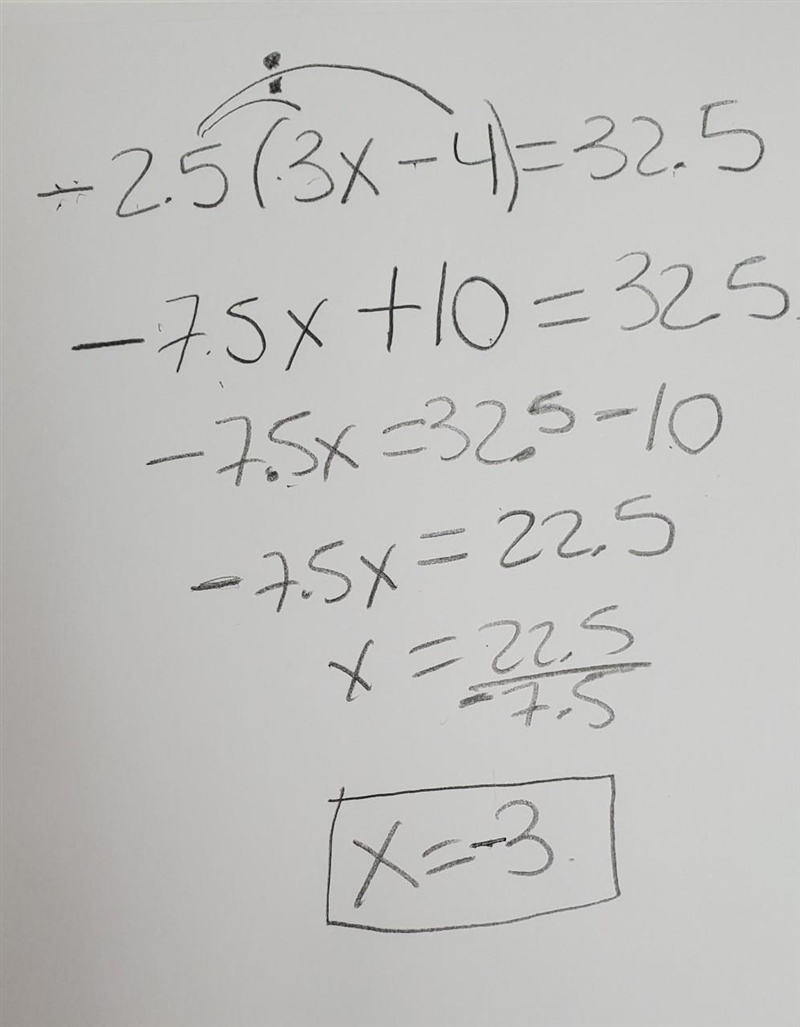 -2.5(3x-4)=32.5
-7.5x+10=32.5
-7.5x=32.5-10
-7.5x=22.5
x=22.5/-7.5
x=-3